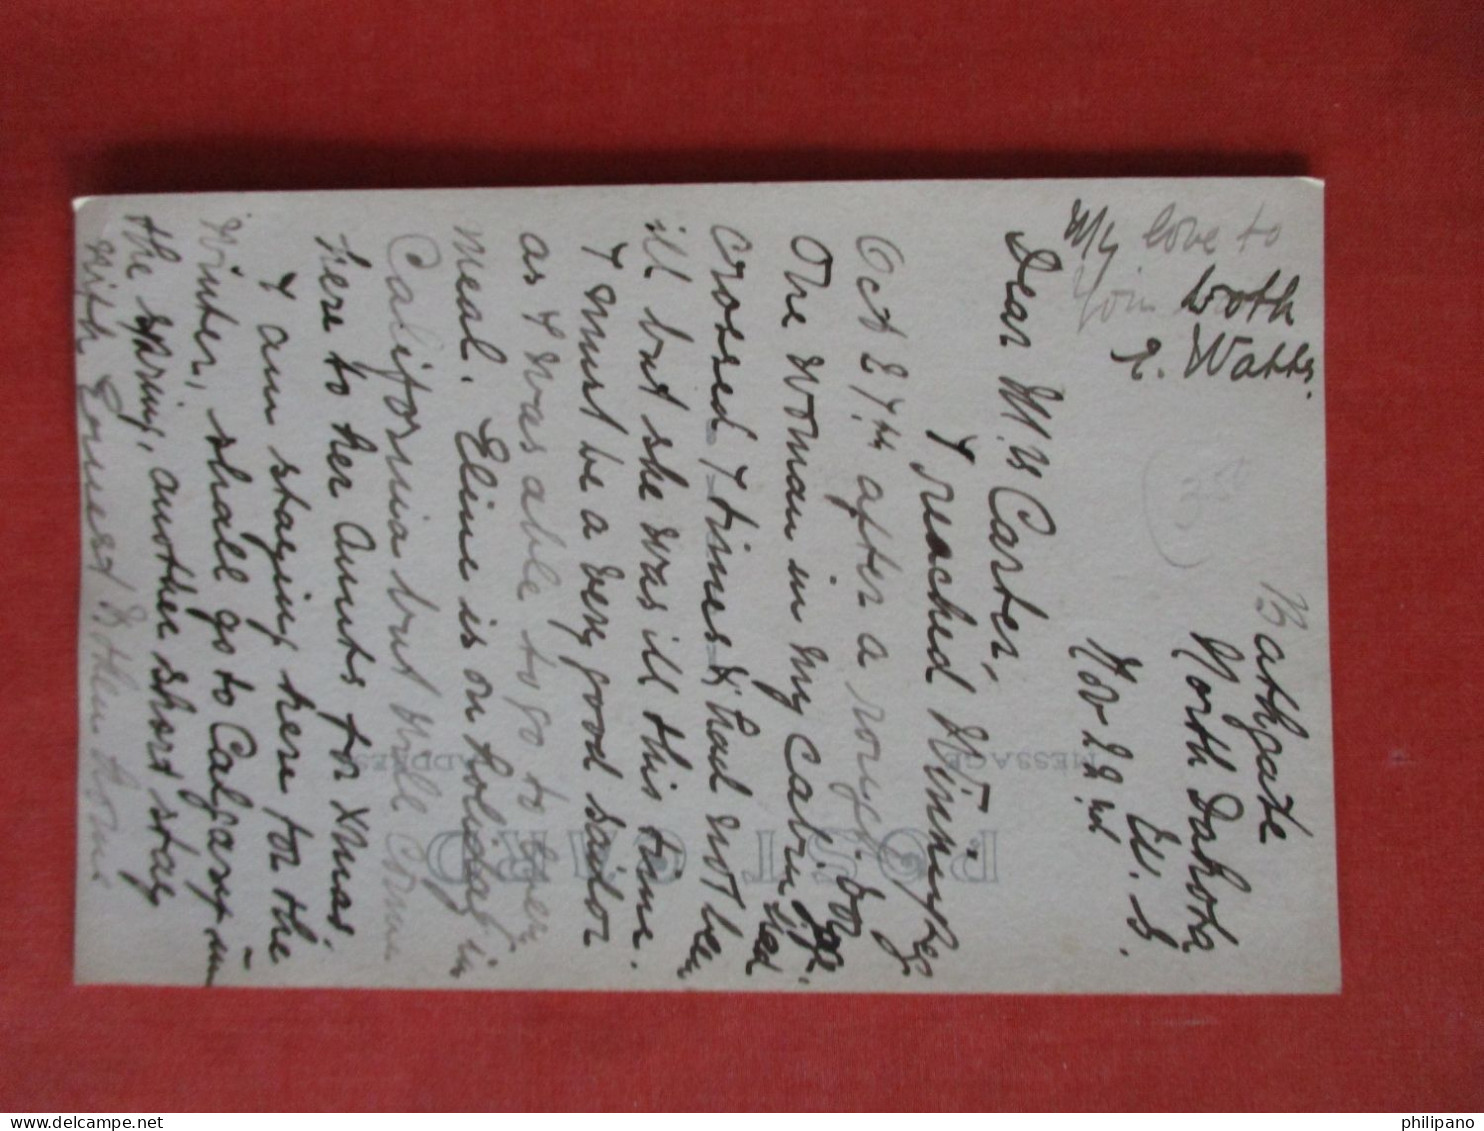 Bathgate
North Dakota
U. S.
Nov 22nd
Dear Mrs Carter,
I reached Winnipeg
Oct 27th after a rough
One woman in my cabin had
crossed 7 times & had not been
ill but she was ill this time.
I must be a very good sailor
as I was able to go to every
meal. Eline is on holiday in
California but will come
here to her Aunts for Xmas.
I am staying here for the
winter, shall go to Calgary in
the spring, another short stay
with Ernest & then home
My love to
you both
E. Watts.
350
POST CARD
MESSAGE
ADDRESS
philipano